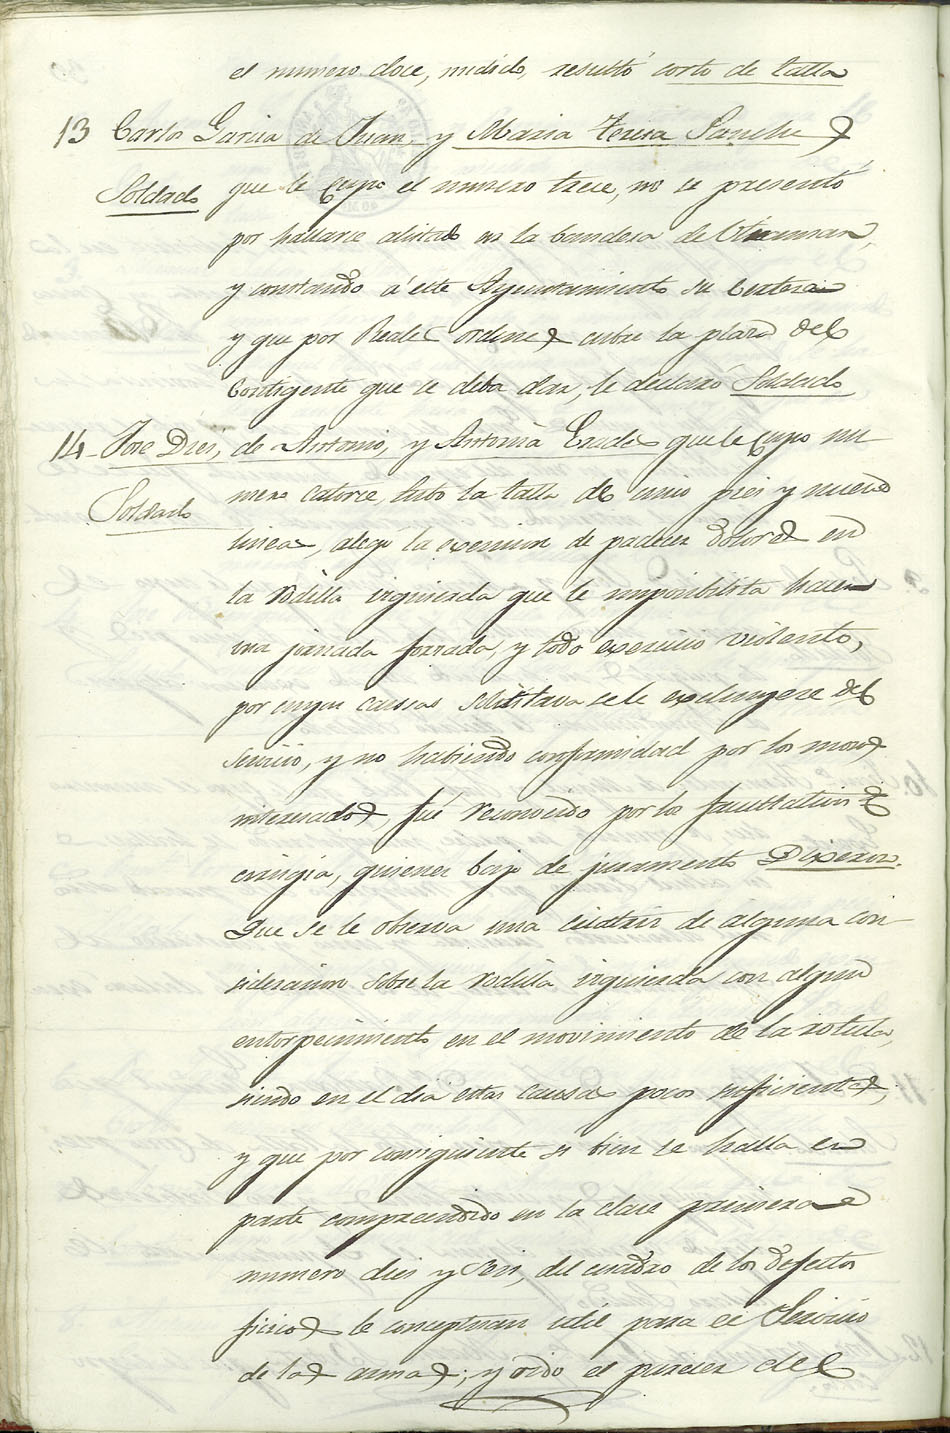 el numero doce, medido, resultó corto de talla
13 Carlos Garcia de Juan, y Maria Teresa Sanche
Soldado que le cupo el numero trece, no se presentó
por hallarse alistado en la bandera de Ultramar,
y constando á este Ayuntamiento su certeza
y que por Reales ordenes cubre la plaza del
Contigente que se deba dar, le declaró Soldado
14 Jose Dies, de Antonio, y Antonia que le cupo nu
Soldado mero catorce, tubo la talla de cinco pies y nueve
lineas, alego la exencion de padecer dolores en
la rodilla izquierda que le imposibilita hacer
una jornada forzada, y todo exercicio violento,
por cuyas causas solicitava se le excluyese del
servicio, y no habiendo conformidad por los mozos
interesados, fué reconocido por los facultativos de
cirugia, quienes bajo de juramento Dixeron.
Que se le observa una cicatriz de alguna con
sideracion sobre la rodilla izquierda con algun
entorpecimiento en el movimiento de la rotula,
siendo en el dia estas causas poco suficientes,
y que por consiguiente si bien se halla en
parte comprendido en la clase primera
numero dies y seis, del cuadro de los defectos
fisicos le conceptuan util para el Servicio
de las armas; y oido el parecer del